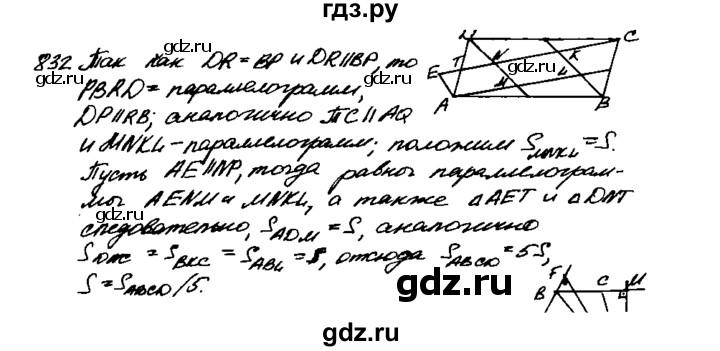 гдз.ру
832 Так как DR = BP и DR∥BP, то
PBRD = параллелограмм,
DP∥RB; аналогично TC∥AQ
и MNKL - параллелограмм; положим S_MNKL = S.
Пусть AE∥NP, тогда равног параллелограм-
мы AENM и MNKL, а также △AET и △DNT
следовательно, S_ADM = S, аналогично
S_DNC = S_BKC = S_ABL = S, отсюда S_ABCD = 5S,
S = S_ABCD/5.
D
C
E
T
N
K
M
L
A
B
F
B
C
M
gdz.ru
gdz.ru
gdz.ru
gdz.ru
gdz.ru
gdz.ru
gdz.ru
gdz.ru